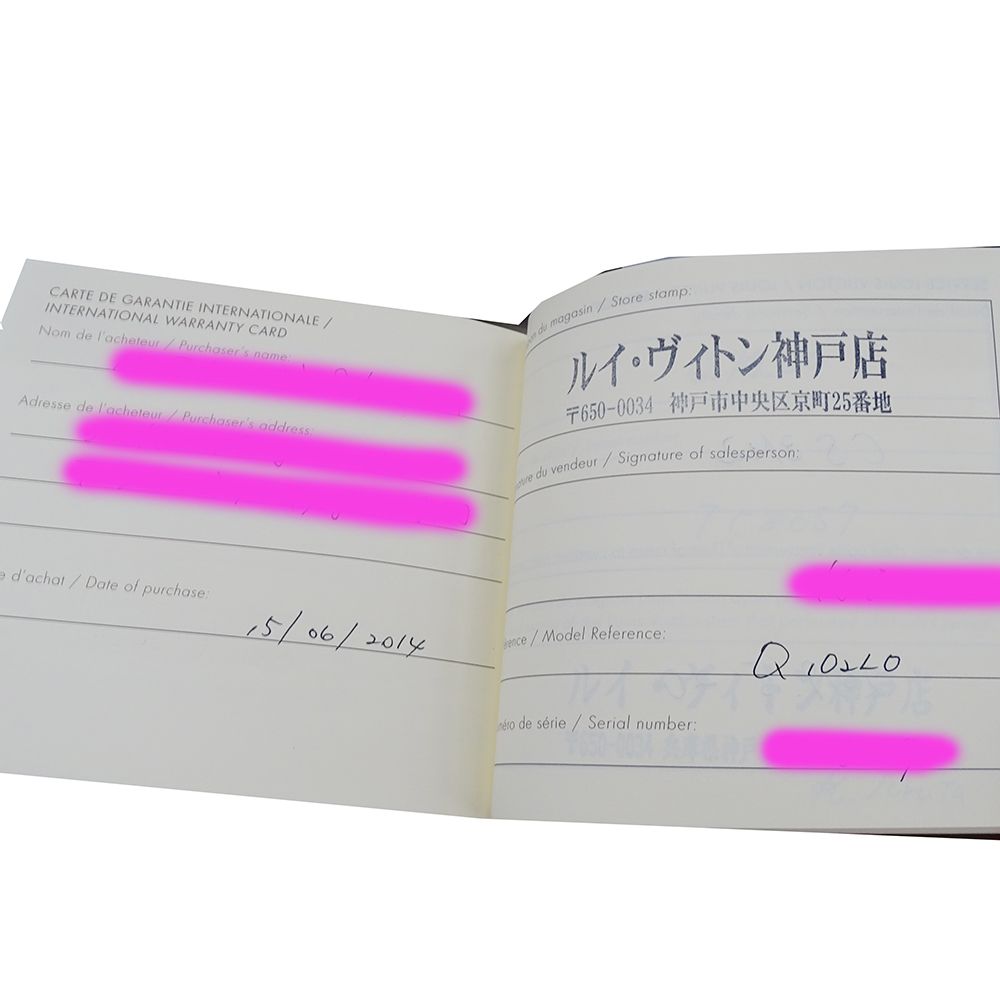 CARTE DE GARANTIE INTERNATIONALE /
INTERNATIONAL WARRANTY CARD
Nom de l'acheteur / Purchaser's name:
Adresse de l'acheteur / Purchaser's address:
e d'achat / Date of purchase:
15/06/2014
du magasin / Store stamp:
ルイ・ヴィトン神戸店
〒650-0034 神戸市中央区京町25番地
du vendeur / Signature of salesperson:
/ Model Reference:
Q102L0
de série / Serial number: